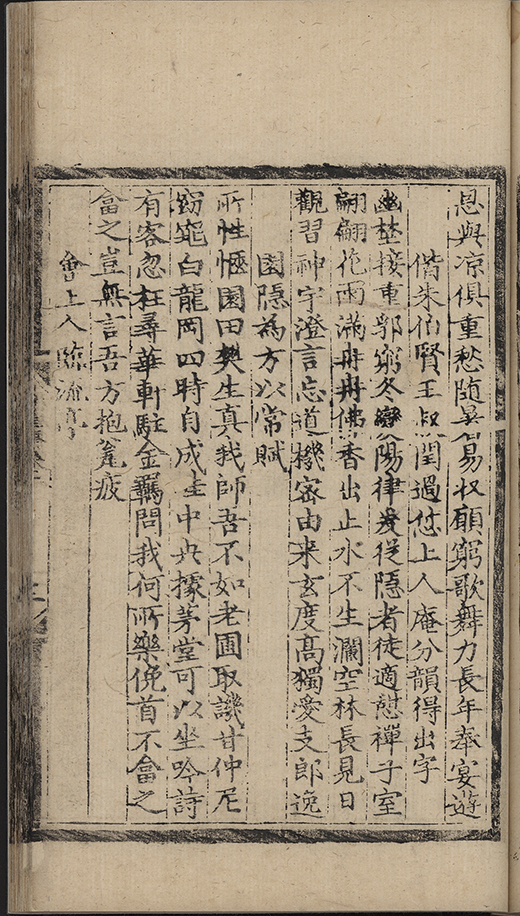 恩與凉俱重愁随暑易收願窮歌舞力長年奉宴遊
偕朱伯賢王叔閏過怤上人庵分韻得出字
幽埜接重鄂窮冬變陽律爰従隠者徒適憩禪子室
翩翩花雨滿冉冉佛香出止水不生瀾空林長見日
觀習神宇澄言忘道機密由来玄度髙獨愛支郎逸
園隠為方以常賦
所性愜園田樊生真我師吾不如老圃取譏甘仲尼
窈窕白龍岡四時自成圭中央據茅堂可以坐吟詩
有客忽枉尋華軒駐金羈問我何所樂俛首不畣之
畣之豈無言吾方抱瓮疲
會上人臨流亭